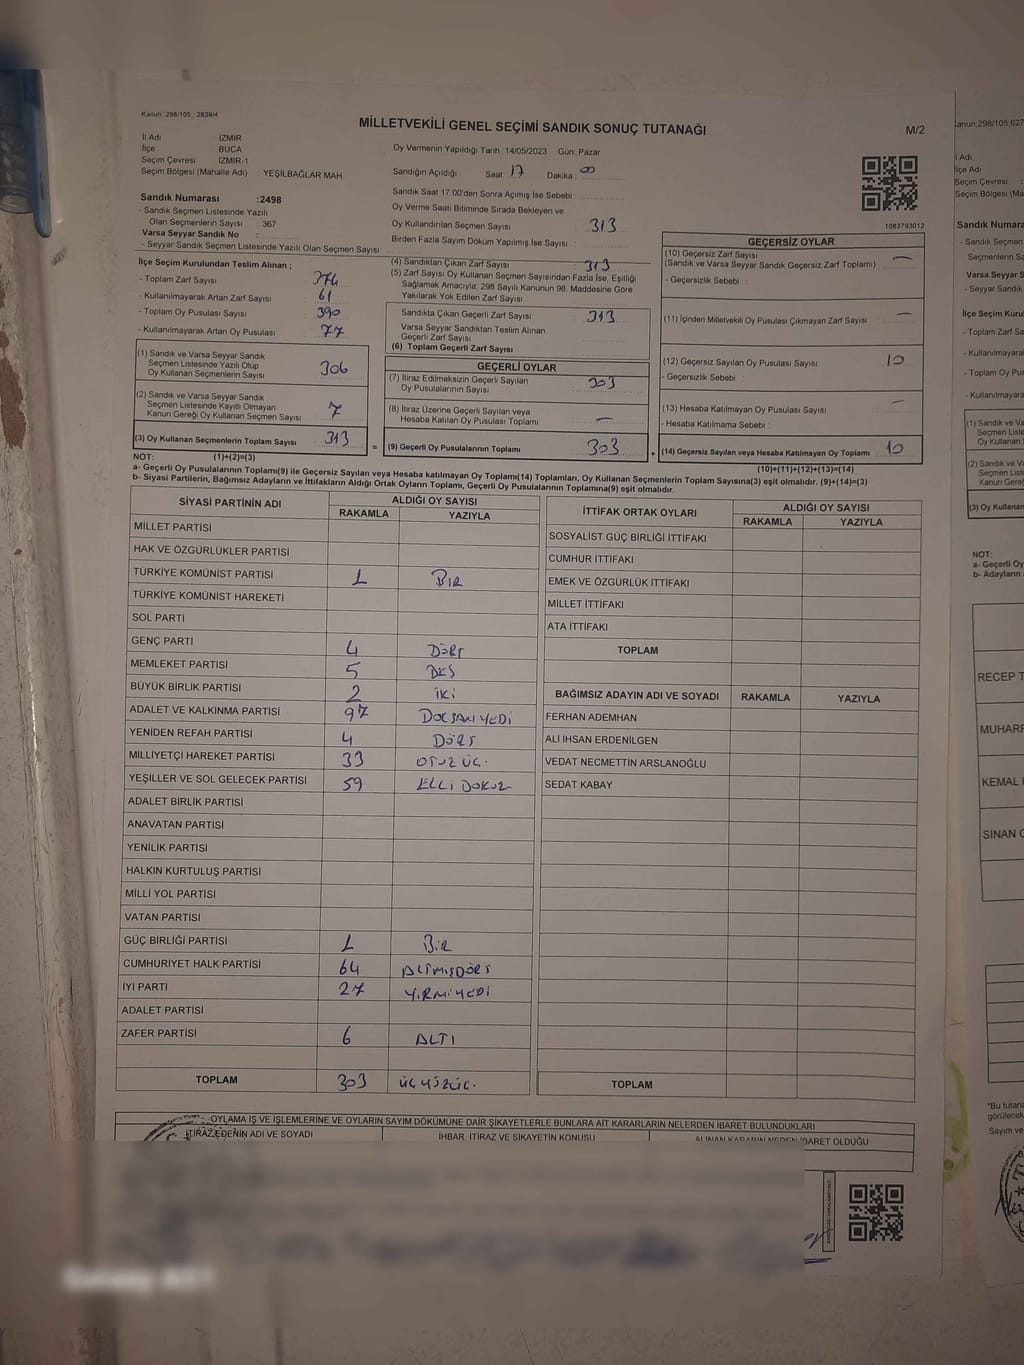 Kanun: 298/105 , 2839/4
MİLLETVEKİLİ GENEL SEÇİMİ SANDIK SONUÇ TUTANAĞI
M/2
İl Adı İZMİR
İlçe BUCA
Seçim Çevresi İZMİR-1
Seçim Bölgesi (Mahalle Adı) : YEŞİLBAĞLAR MAH.
Oy Vermenin Yapıldığı Tarih :14/05/2023 Gün: Pazar
Sandığın Açıldığı Saat: 17 Dakika: 00
Sandık Saat 17:00'den Sonra Açımış İse Sebebi :
Oy Verme Saati Bitiminde Sırada Bekleyen ve
Oy Kullandırılan Seçmen Sayısı : 313
Birden Fazla Sayım Döküm Yapılmış İse Sayısı :
1083793012
Sandık Numarası :2498
- Sandık Seçmen Listesinde Yazılı
Olan Seçmenlerin Sayısı : 367
Varsa Seyyar Sandık No :
- Seyyar Sandık Seçmen Listesinde Yazılı Olan Seçmen Sayısı:
İlçe Seçim Kurulundan Teslim Alınan ;
- Toplam Zarf Sayısı : 374
- Kullanılmayarak Artan Zarf Sayısı : 61
- Toplam Oy Pusulası Sayısı : 390
- Kullanılmayarak Artan Oy Pusulası : 77
(1) Sandık ve Varsa Seyyar Sandık
Seçmen Listesinde Yazılı Olup
Oy Kullanan Seçmenlerin Sayısı : 306
(2) Sandık ve Varsa Seyyar Sandık
Seçmen Listesinde Kayıtlı Olmayan
Kanun Gereği Oy Kullanan Seçmen Sayısı : 7
(3) Oy Kullanan Seçmenlerin Toplam Sayısı : 313
(1)+(2)=(3)
(4) Sandıktan Çıkan Zarf Sayısı : 313
(5) Zarf Sayısı Oy Kullanan Seçmen Sayısından Fazla İse, Eşitliği
Sağlamak Amacıyla, 298 Sayılı Kanunun 98. Maddesine Göre
Yakılarak Yok Edilen Zarf Sayısı :
Sandıkta Çıkan Geçerli Zarf Sayısı : 313
Varsa Seyyar Sandıktan Teslim Alınan
Geçerli Zarf Sayısı :
(6) Toplam Geçerli Zarf Sayısı :
GEÇERLİ OYLAR
(7) İtiraz Edilmeksizin Geçerli Sayılan
Oy Pusulalarının Sayısı : 303
(8) İtiraz Üzerine Geçerli Sayılan veya
Hesaba Katılan Oy Pusulası Toplamı : –
= (9) Geçerli Oy Pusulalarının Toplamı : 303
GEÇERSİZ OYLAR
(10) Geçersiz Zarf Sayısı : –
(Sandık ve Varsa Seyyar Sandık Geçersiz Zarf Toplamı)
- Geçersizlik Sebebi :
(11) İçinden Milletvekili Oy Pusulası Çıkmayan Zarf Sayısı : –
(12) Geçersiz Sayılan Oy Pusulası Sayısı : 10
- Geçersizlik Sebebi :
(13) Hesaba Katılmayan Oy Pusulası Sayısı : –
- Hesaba Katılmama Sebebi :
+ (14) Geçersiz Sayılan veya Hesaba Katılmayan Oy Toplamı : 10
(10)+(11)+(12)+(13)=(14)
NOT:
a- Geçerli Oy Pusulalarının Toplamı(9) ile Geçersiz Sayılan veya Hesaba katılmayan Oy Toplamı(14) Toplamları, Oy Kullanan Seçmenlerin Toplam Sayısına(3) eşit olmalıdır. (9)+(14)=(3)
b- Siyasi Partilerin, Bağımsız Adayların ve İttifakların Aldığı Ortak Oyların Toplamı, Geçerli Oy Pusulalarının Toplamına(9) eşit olmalıdır.
SİYASİ PARTİNİN ADI ALDIĞI OY SAYISI
RAKAMLA YAZIYLA
MİLLET PARTİSİ
HAK VE ÖZGÜRLÜKLER PARTİSİ
TÜRKİYE KOMÜNİST PARTİSİ 1 BİR
TÜRKİYE KOMÜNİST HAREKETİ
SOL PARTİ
GENÇ PARTİ 4 DÖRT
MEMLEKET PARTİSİ 5 BEŞ
BÜYÜK BİRLİK PARTİSİ 2 İKİ
ADALET VE KALKINMA PARTİSİ 97 DOKSANYEDİ
YENİDEN REFAH PARTİSİ 4 DÖRT
MİLLİYETÇİ HAREKET PARTİSİ 33 OTUZ ÜÇ.
YEŞİLLER VE SOL GELECEK PARTİSİ 59 ELLİ DOKUZ
ADALET BİRLİK PARTİSİ
ANAVATAN PARTİSİ
YENİLİK PARTİSİ
HALKIN KURTULUŞ PARTİSİ
MİLLİ YOL PARTİSİ
VATAN PARTİSİ
GÜÇ BİRLİĞİ PARTİSİ 1 BİR
CUMHURİYET HALK PARTİSİ 64 ALTMIŞDÖRT
İYİ PARTİ 27 YİRMİYEDİ
ADALET PARTİSİ
ZAFER PARTİSİ 6 ALTI
TOPLAM 303 ÜÇYÜZÜÇ.
İTTİFAK ORTAK OYLARI ALDIĞI OY SAYISI
RAKAMLA YAZIYLA
SOSYALİST GÜÇ BİRLİĞİ İTTİFAKI
CUMHUR İTTİFAKI
EMEK VE ÖZGÜRLÜK İTTİFAKI
MİLLET İTTİFAKI
ATA İTTİFAKI
TOPLAM
BAĞIMSIZ ADAYIN ADI VE SOYADI RAKAMLA YAZIYLA
FERHAN ADEMHAN
ALİ İHSAN ERDENİLGEN
VEDAT NECMETTİN ARSLANOĞLU
SEDAT KABAY
TOPLAM
OYLAMA İŞ VE İŞLEMLERİNE VE OYLARIN SAYIM DÖKÜMÜNE DAİR ŞİKAYETLERLE BUNLARA AİT KARARLARIN NELERDEN İBARET BULUNDUKLARI
İTİRAZ EDENİN ADI VE SOYADI İHBAR, İTİRAZ VE ŞİKAYETİN KONUSU ALINAN KARARIN NEDEN İBARET OLDUĞU
Kanun:298/105;627
İl Adı
İlçe Adı
Seçim Çevresi
Seçim Bölgesi (Ma
Sandık Numara
- Sandık Seçmen
Seçmenlerin Sa
Varsa Seyyar
- Seyyar Sandık
İlçe Seçim Kuru
- Toplam Zarf
- Kullanılmayarak
- Toplam Oy Pu
- Kullanılmayarak
(1) Sandık ve Va
Seçmen Liste
Oy Kullanan
(2) Sandık ve Va
Seçmen Liste
Kanun Gereğ
(3) Oy Kullanan
NOT:
a- Geçerli Oy
b- Adayların
RECEP T
MUHARR
KEMAL
SİNAN O
"Bu tutana
görülecek
Sayım ve